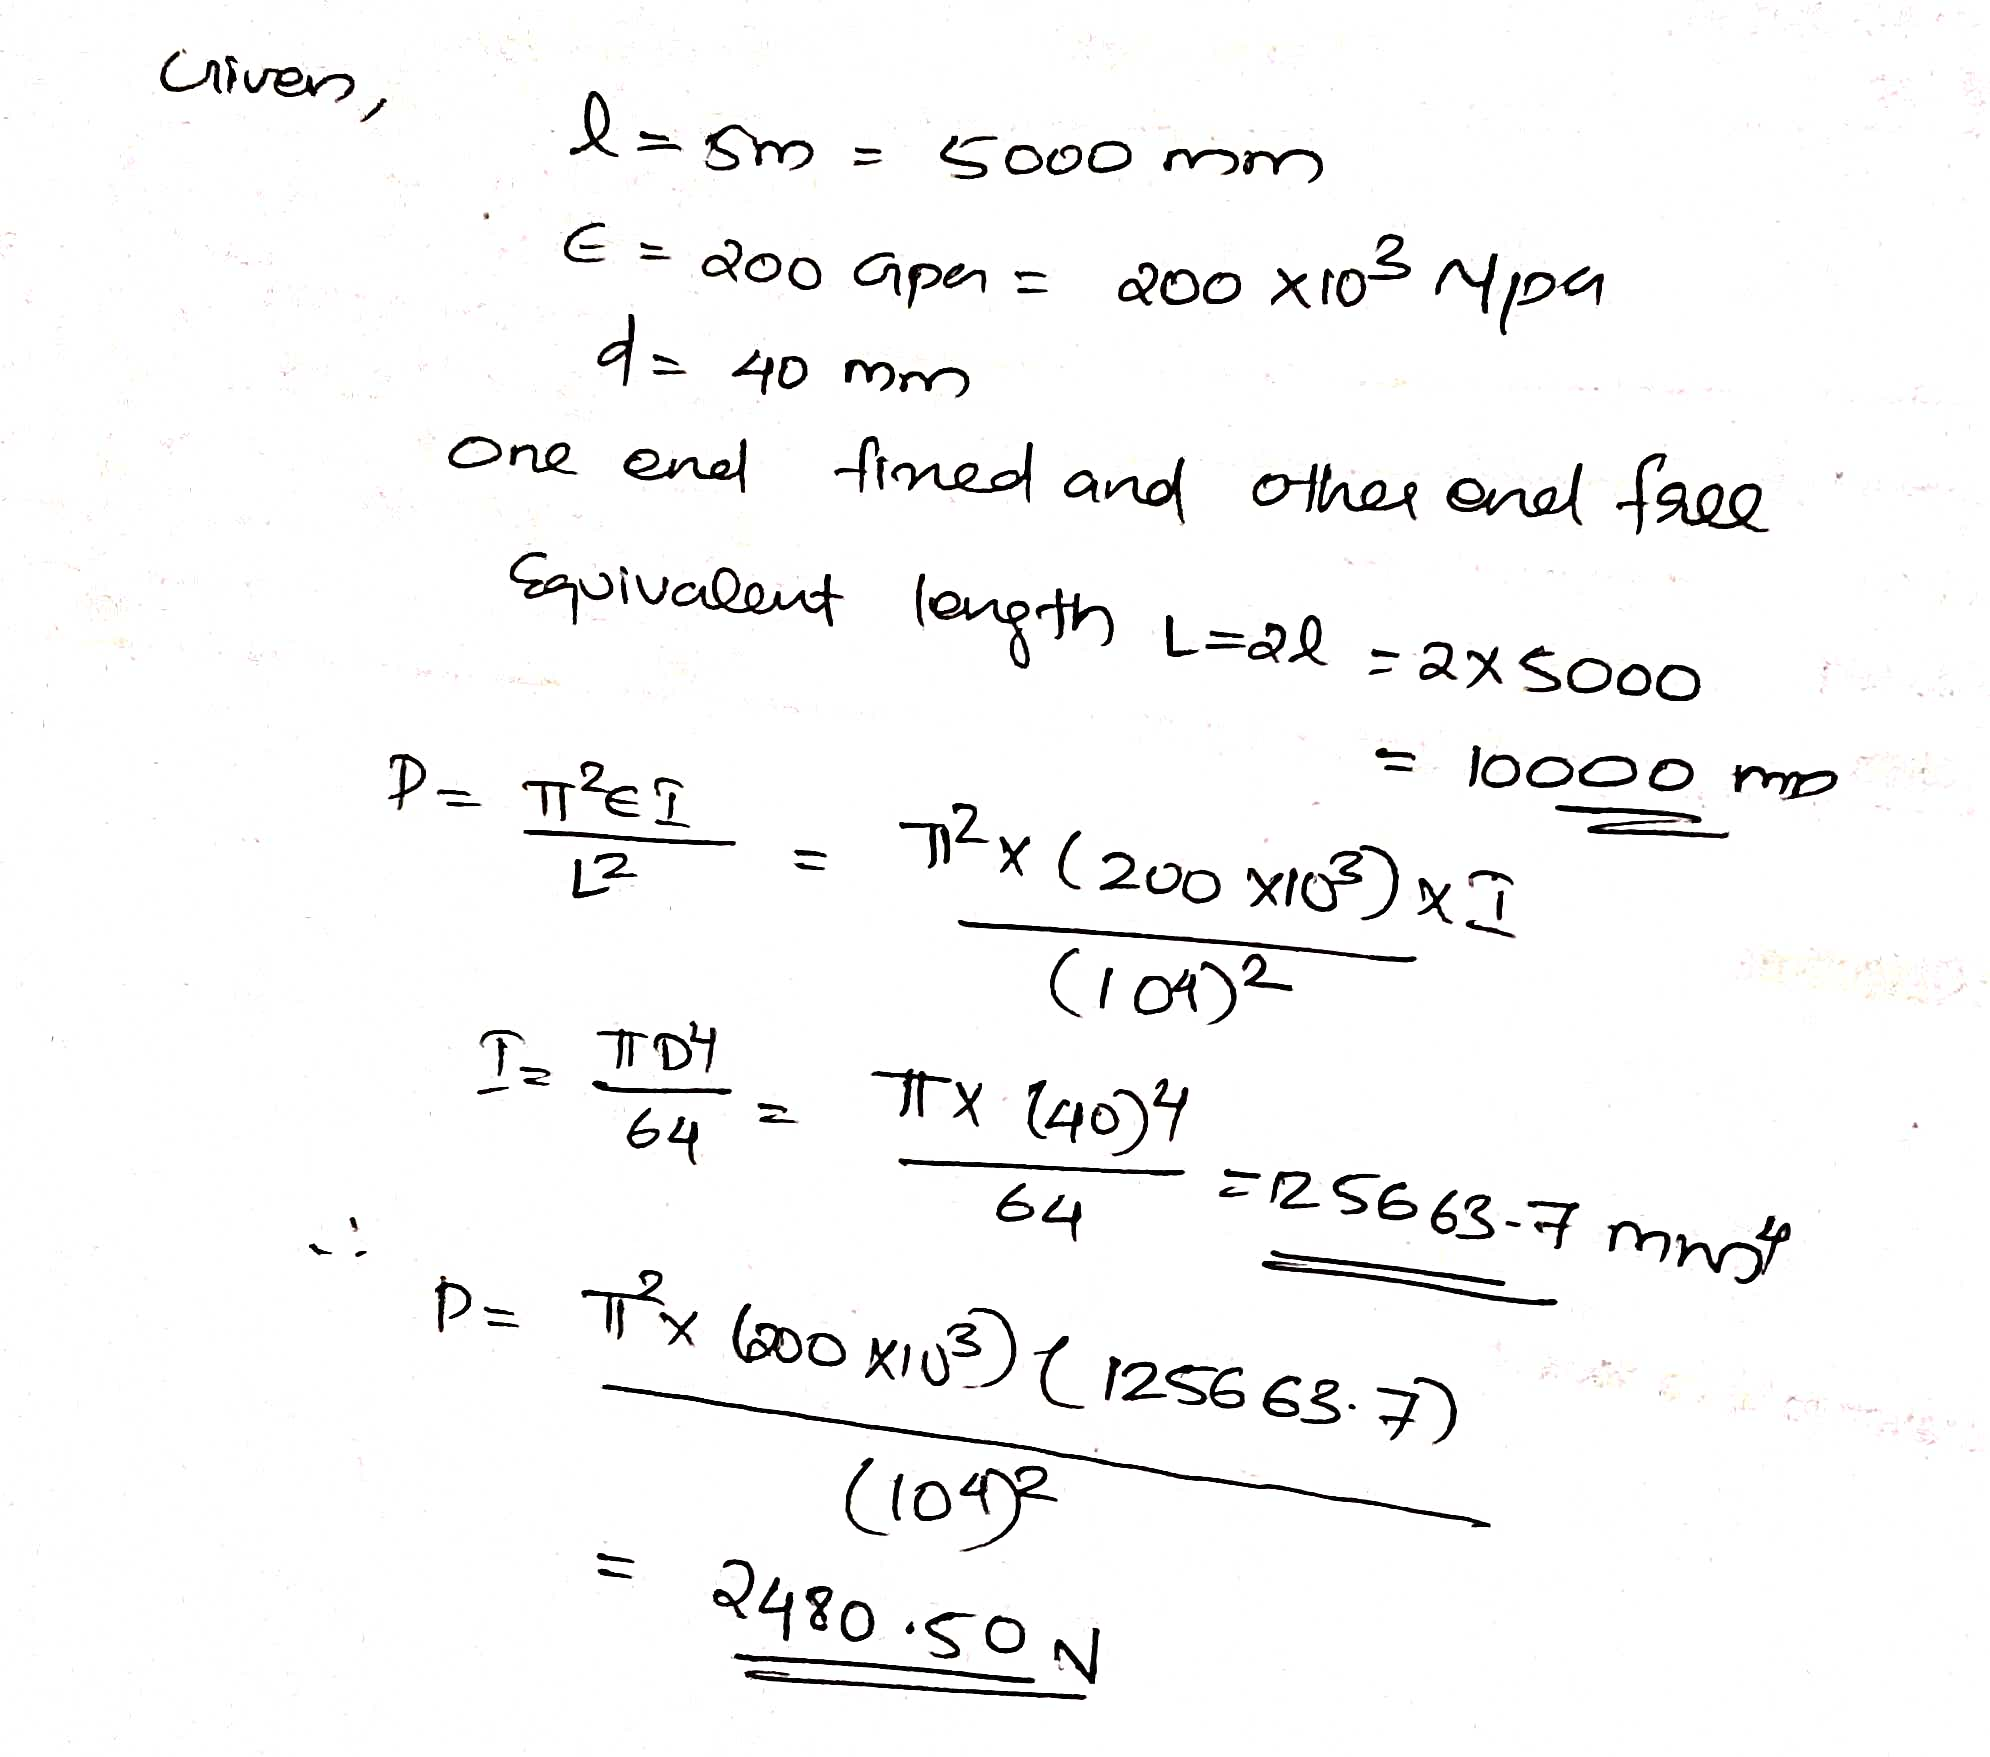 Given,
l = 5m = 5000 mm
E = 200 Gpa = 200 x10³ Mpa
d = 40 mm
One end fixed and other end free
Equivalent length L=2l = 2x5000
= 10000 mm
P = π²EI / L² = π² x (200 x10³) x I / (10⁴)²
I = πD⁴ / 64 = π x (40)⁴ / 64 = 125663.7 mm⁴
∴ P = π² x (200 x10³) (125663.7) / (10⁴)²
= 2480.50 N